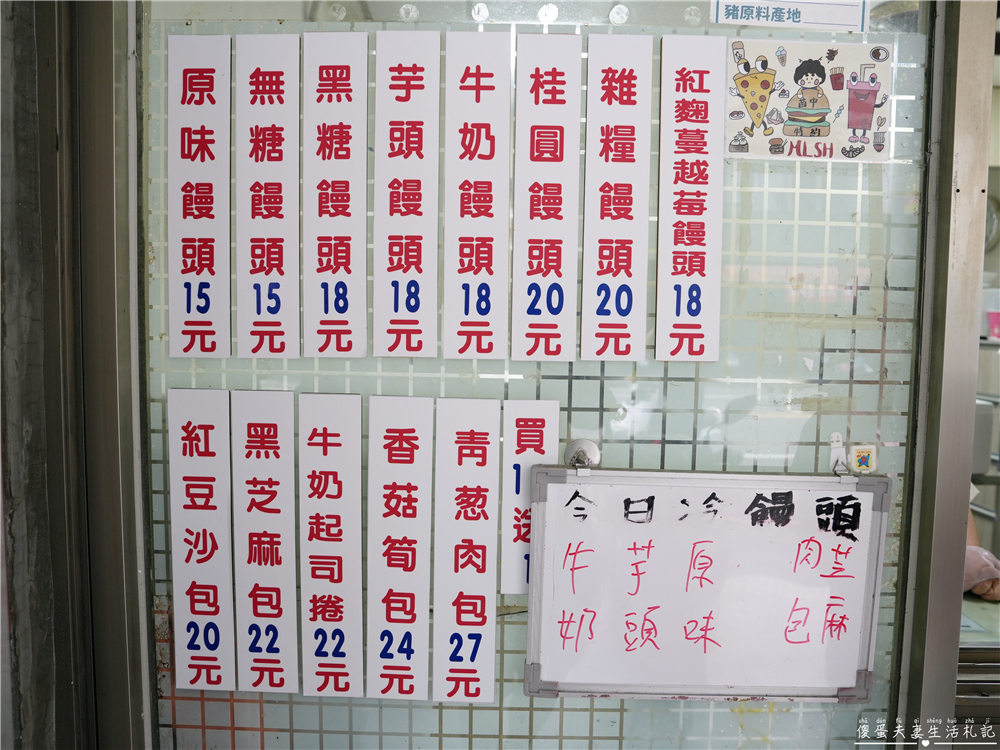 豬原料產地
原味饅頭15元
無糖饅頭15元
黑糖饅頭18元
芋頭饅頭18元
牛奶饅頭18元
桂圓饅頭20元
雜糧饅頭20元
紅麴蔓越莓饅頭18元
MLSH
紅豆沙包20元
黑芝麻包22元
牛奶起司捲22元
香菇筍包24元
青葱肉包27元
買1送1
今日冷饅頭
牛奶
芋頭
原味
肉包
芝麻
shǎ dàn fū qī shēng huó zhá jì
傻蛋夫妻生活札記